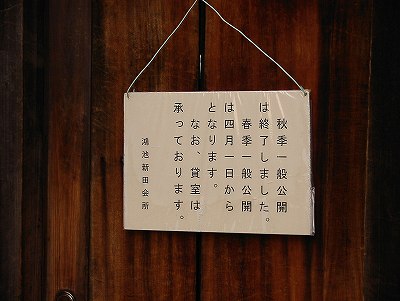 秋季一般公開
は終了しました。
春季一般公開
は四月一日から
となります。
なお、貸室は
承っております。
鴻池新田会所